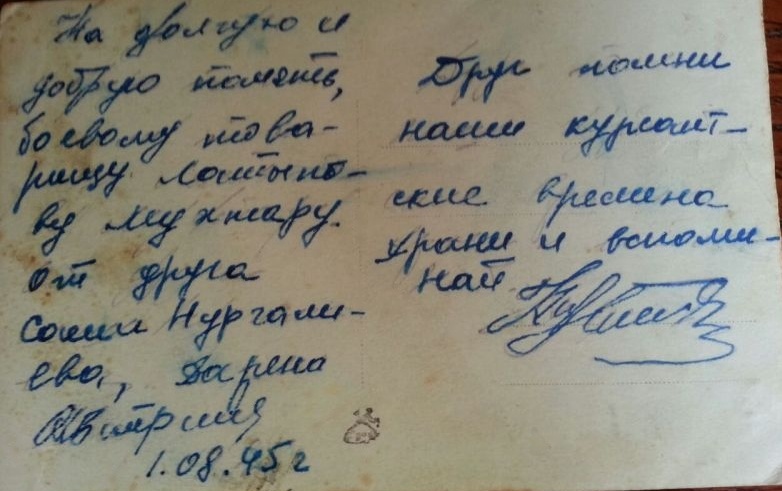 На долгую и
добрую память,
боевому това-
рищу Латыпо-
ву Мухтару.
от друга
Саши Нургали-
ева,
Австрия
1.08.45 г
Друг помни
наши курсант-
ские времена
храни и вспоми-
най